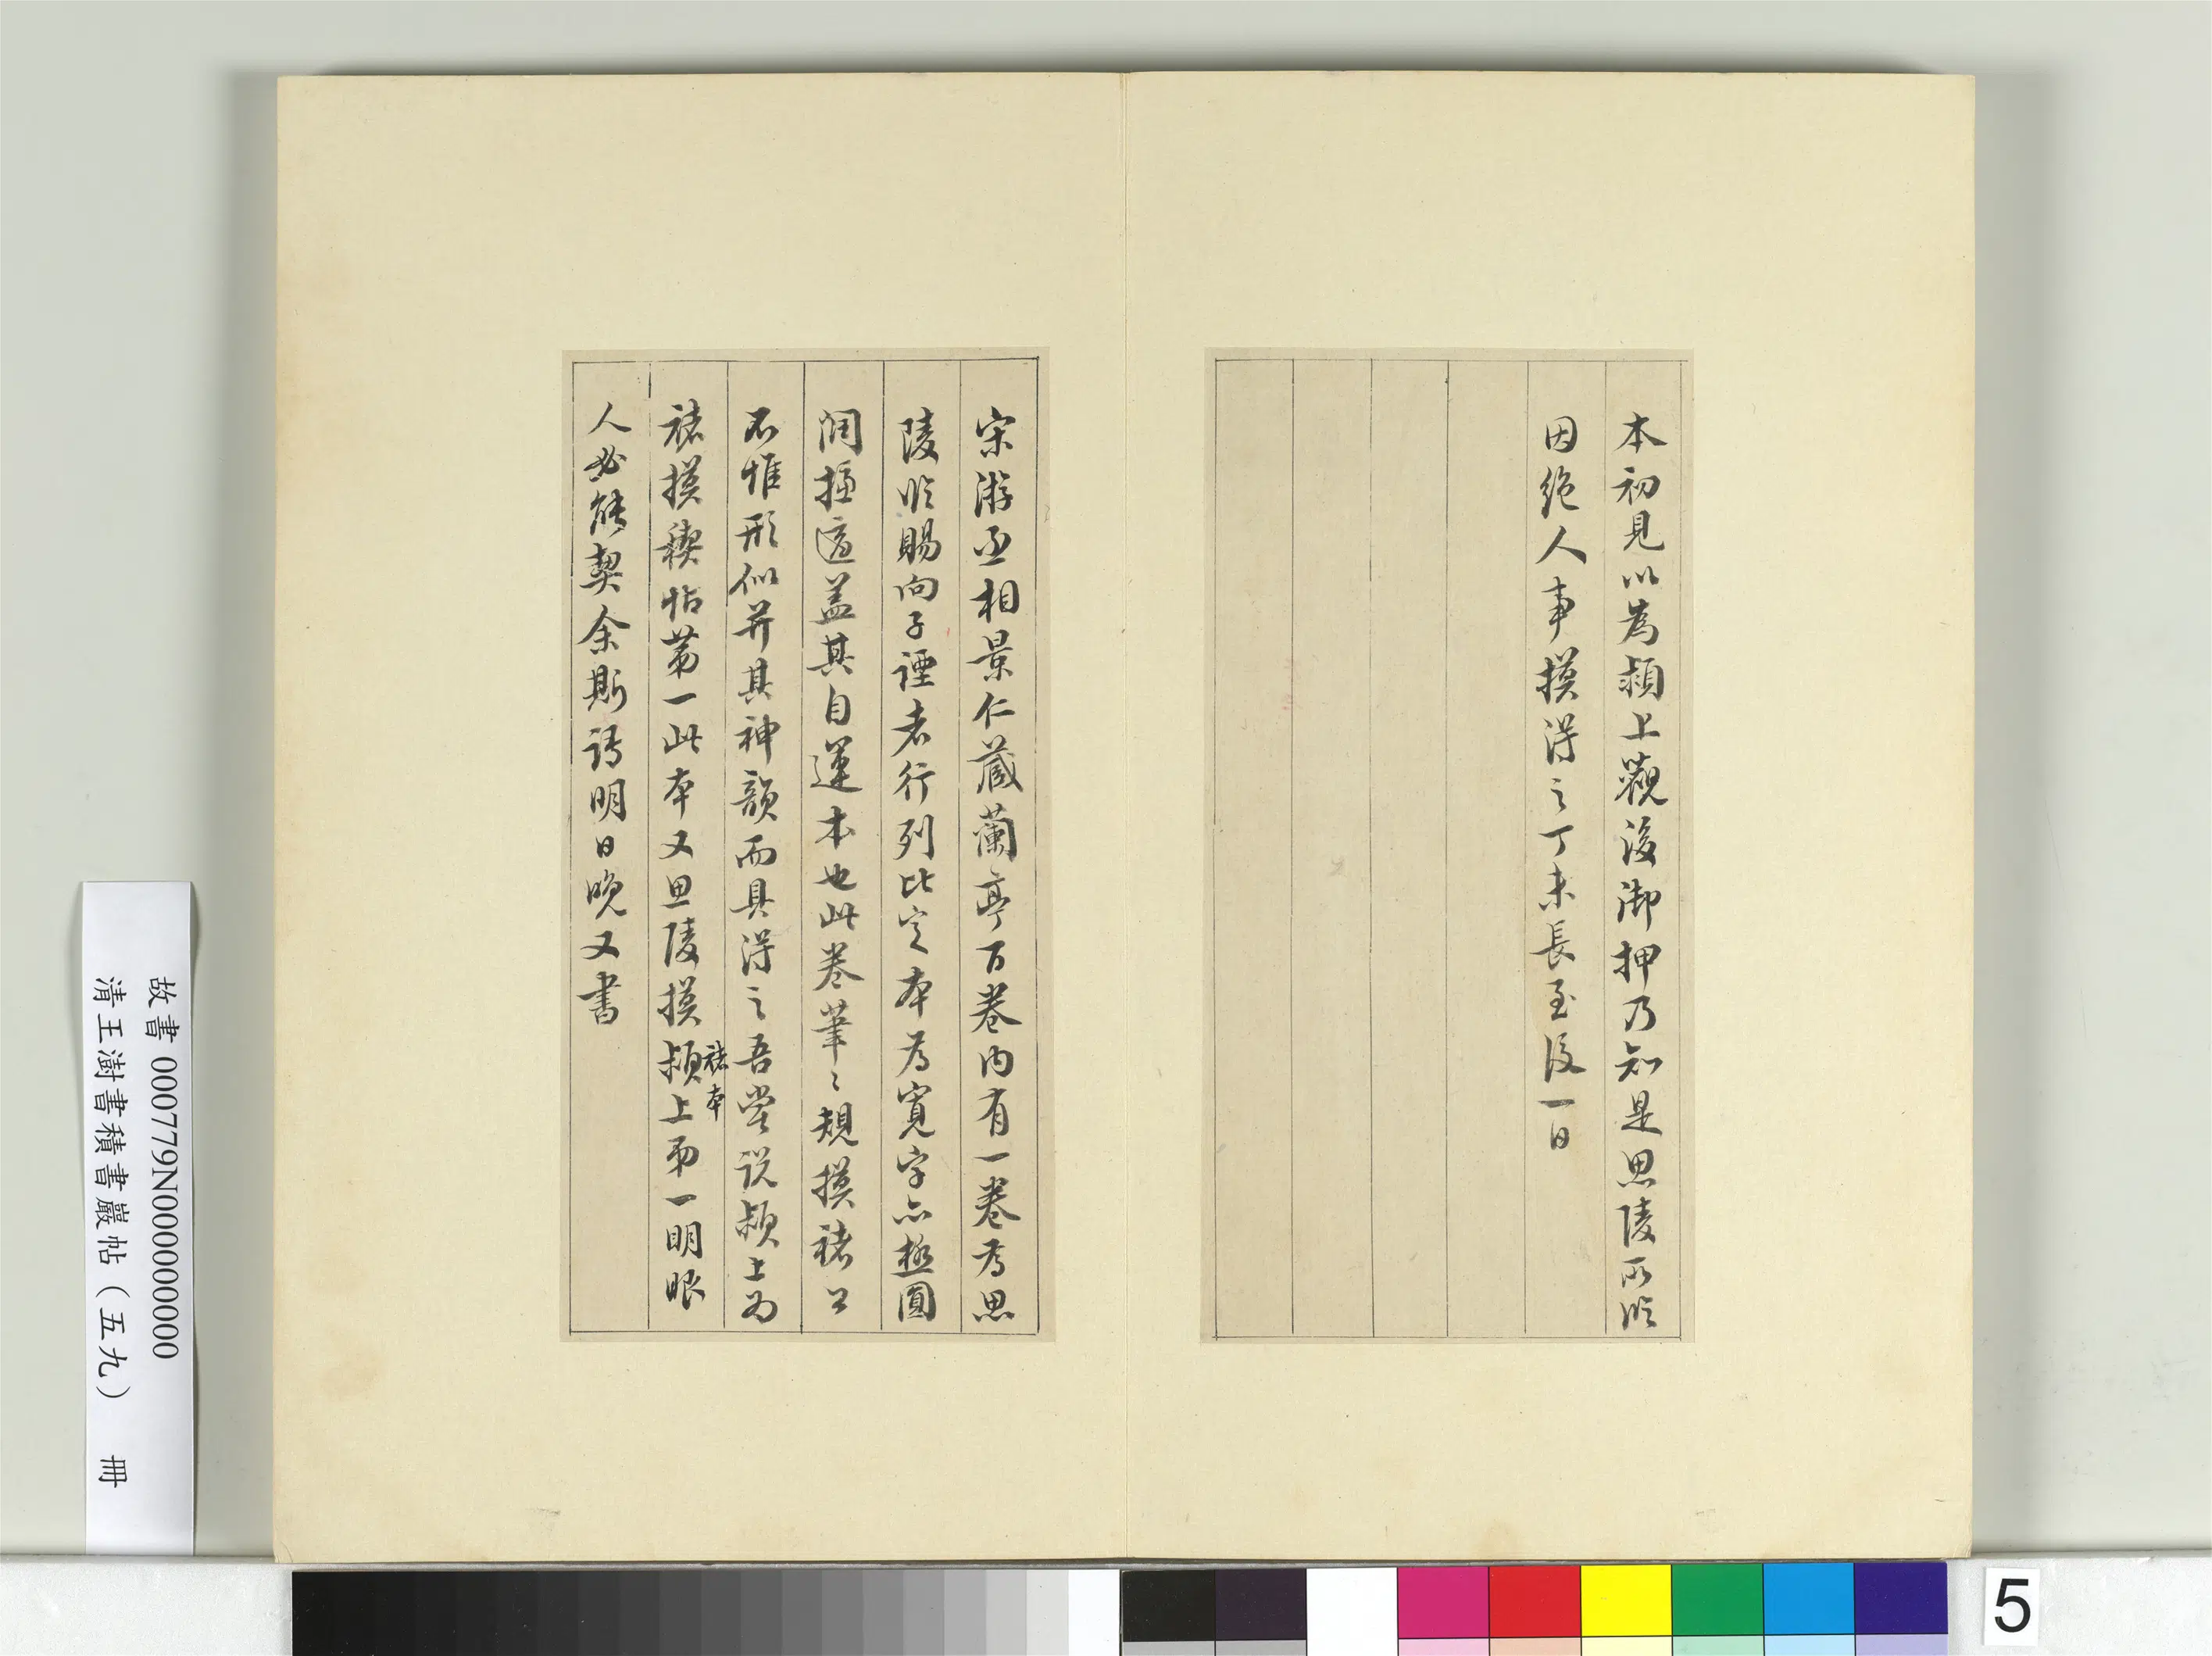 本初見以為潁上觀後御押乃知是思陵所臨
因絕人事摸得之丁未長至後一日
宋游丞相景仁藏蘭亭百卷內有一卷為思
陵臨賜向子諲者行列比定本為寬字亦極圓
潤摇蓋其自運本也此卷筆〻規摸褚公
不惟形似并其神韻而具得之吾嘗說潁上為
褚摸禊帖苐一此本又思陵摸褚本潁上苐一明眼
人必能契余斯語明日晚又書
故書 000779N000000000
清王澍書積書巖帖（五九） 冊
5